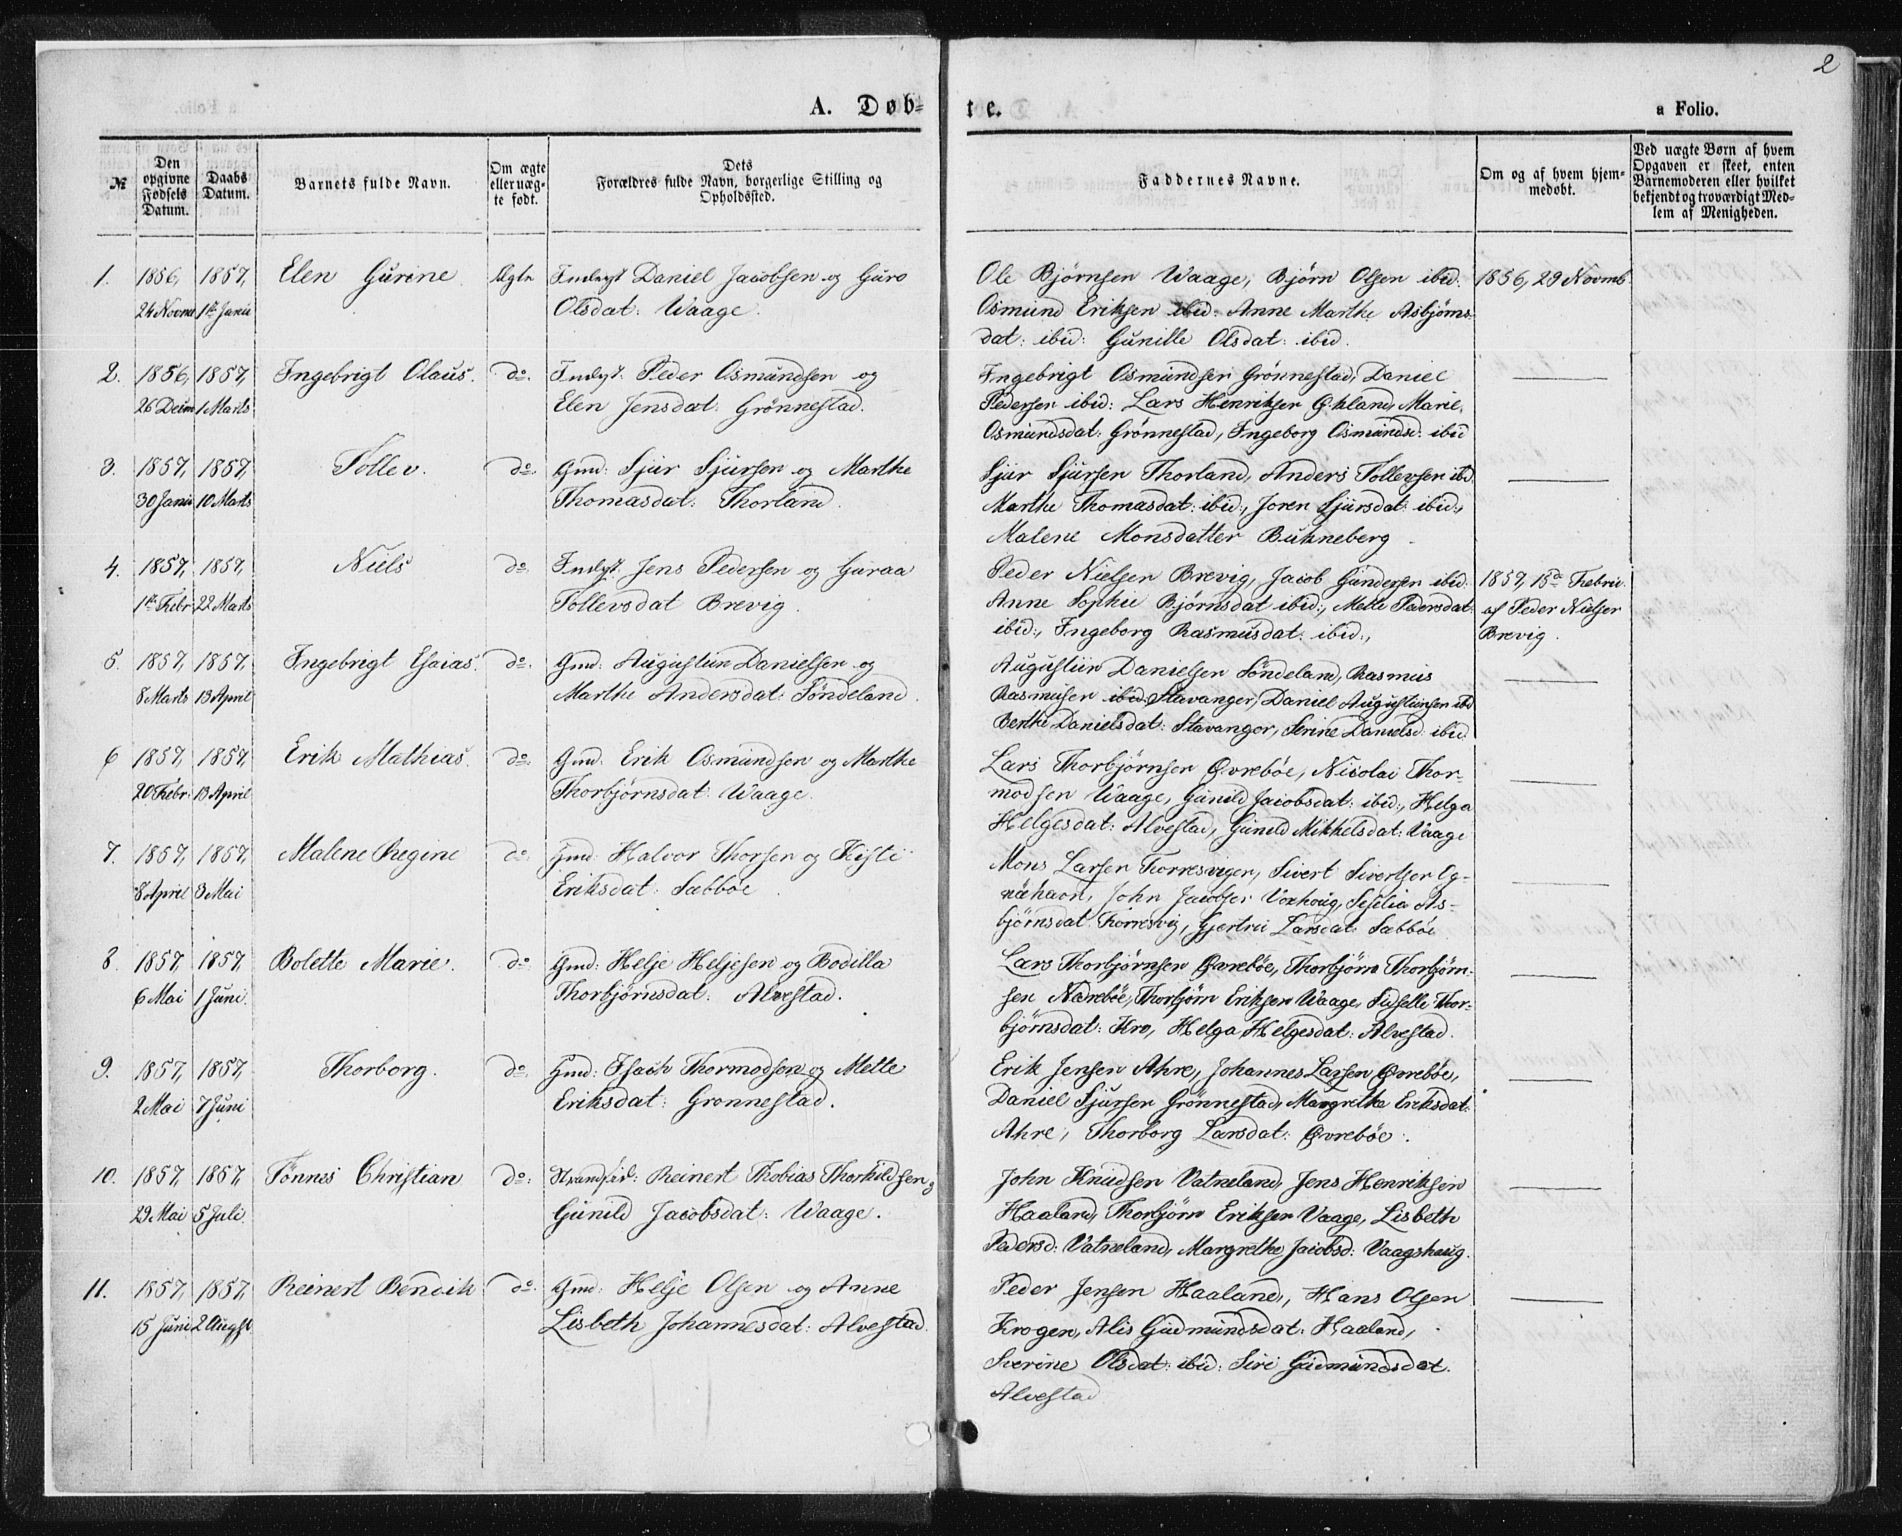 2
A. Døb-
te.
a Folio.
№
Den opgivne Fødsels Datum.
Daabs Datum.
Barnets fulde Navn.
Om ægte eller uæg- te født.
Dets
Forældres fulde Navn, borgerlige Stilling og
Opholdssted.
Faddernes Navne.
Om og af hvem hjem- medøbt.
Ved uægte Børn af hvem Opgaven er skeet, enten Barnemoderen eller hvilket bekjendt og troværdigt Med- lem af Menigheden.
1. 1856, 1857, Elen Gurine Ægte Inderst Daniel Jacobsen og Guro
24 Novmr 1ste Janu Olsdat: Waage.
Ole Bjørnsen Waage, Bjørn Olsen ibid. 1856, 29 Novmb
Osmund Eriksen ibid: Anne Marthe Asbjørns-
dat: ibid: Gunille Olsdat: ibid.
2. 1856, 1857, Ingebrigt Olaus. do. Inderst. Peder Osmundsen og
26 Decm 1 Marts Elen Jensdat: Grønnestad.
Ingebrigt Osmundsen Grønnestad, Daniel
Pedersen ibid: Lars Henriksen Økland, Marie
Osmundsdat: Grønnestad, Ingeborg Osmundsd: ibid
3. 1857, 1857 Tollev. do. Gmd: Sjur Sjursen og Marthe
30 Janu 10 Marts Thomasdat: Thorland.
Sjur Sjursen Thorland, Anders Tollevsen ibd.
Marthe Thomasdat: ibid:, Joren Sjursdat: ibid:,
Malene Monsdatter Buhneberg.
4. 1857, 1857, Niels do. Inderst. Jens Pedersen og Guraa
1ste Febr 22 Marts Tollevsdat Brevig.
Peder Nielsen Brevig, Jacob Gundersen ibid: 1857, 15de Febru.
Anne Sophie Bjørnsdat ibid:, Mette Pedersdat: af Peder Nielsen
ibid:, Ingeborg Rasmusdat: ibid:, Brevig.
5. 1857, 1857. Ingebrigt Esaias. do. Gmd: Augustin Danielsen og
8 Marts 13 April Marthe Andersdat: Søndeland.
Augustin Danielsen Søndeland, Rasmus
Rasmusen ibid: Stavanger, Daniel Augustinsen ibd
Berthe Danielsdat: Stavanger, Serine Danielsd: ibid
6 1857, 1857. Erik Mathias. do. Gmd. Erik Osmundsen og Marthe
20 Febr. 13 April Thorbjørnsdat: Waage.
Lars Thorbjørnsen Øvrebøe, Nicolai Thor-
modsen Waage, Gunild Jacobsdat: ibid:, Helga
Helgesdat: Alvestad, Gunild Mikkelsdat: Vaage
7. 1857, 1857, Malene Regine do: Gmd: Halvor Thorsen og Kisti
8 April 3 Mai Eriksdat: Sæbbøe.
Mons Larsen Torresvigen, Sivert Sivertsen
John Jacobsen Voxhoug, Sesilia As-
bjørnsdat Torresvig, Gjertru Larsdat: Sæbbøe
8. 1857 1857, Bolette Marie. do. Gmd: Helje Heljesen og Bodilla
6 Mai 1 Juni. Thorbjørnsdat: Alvestad.
Lars Thorbjørnsen Øvrebøe, Thorbjørn Thorbjørn-
sen Nærebøe, Thorbjørn Eriksen Waage, Sidselle Thor-
bjørnsdat: Kro, Helga Helgesdat: Alvestad.
9. 1857, 1857, Thorborg. do. Gmd: Isach Thormodsen og Mette
2 Mai 7 Juni Eriksdat: Grønnestad.
Erik Jensen Ahre, Johannes Larsen Øvrebøe,
Daniel Sjursen Grønnestad, Margrethe Eriksdat:
Ahre, Thorborg Larsdat: Øvrebøe.
10. 1857, 1857, Tønnes Christian do: Strandsid: Reinert Thobias Thorkildsen &
29 Mai 5 Juli. Gunild Jacobsdat: Waage.
John Knudsen Vatneland, Jens Henriksen
Haaland, Thorbjørn Eriksen Vaage, Lisbeth
Pedersd: Vatneland, Margrethe Jacobsd: Vaagshaug.
11. 1857, 1857, Reinert Bendik do. Gmd: Helje Olsen og Anne
15 Juni 2 Augst. Lisbeth Johannesdat: Alvestad.
Peder Jensen Haaland, Hans Olsen
Krogen, Alis Gudmundsdat: Haaland,
Severine Olsdat: ibid: Siri Gudmundsdat.
Alvestad